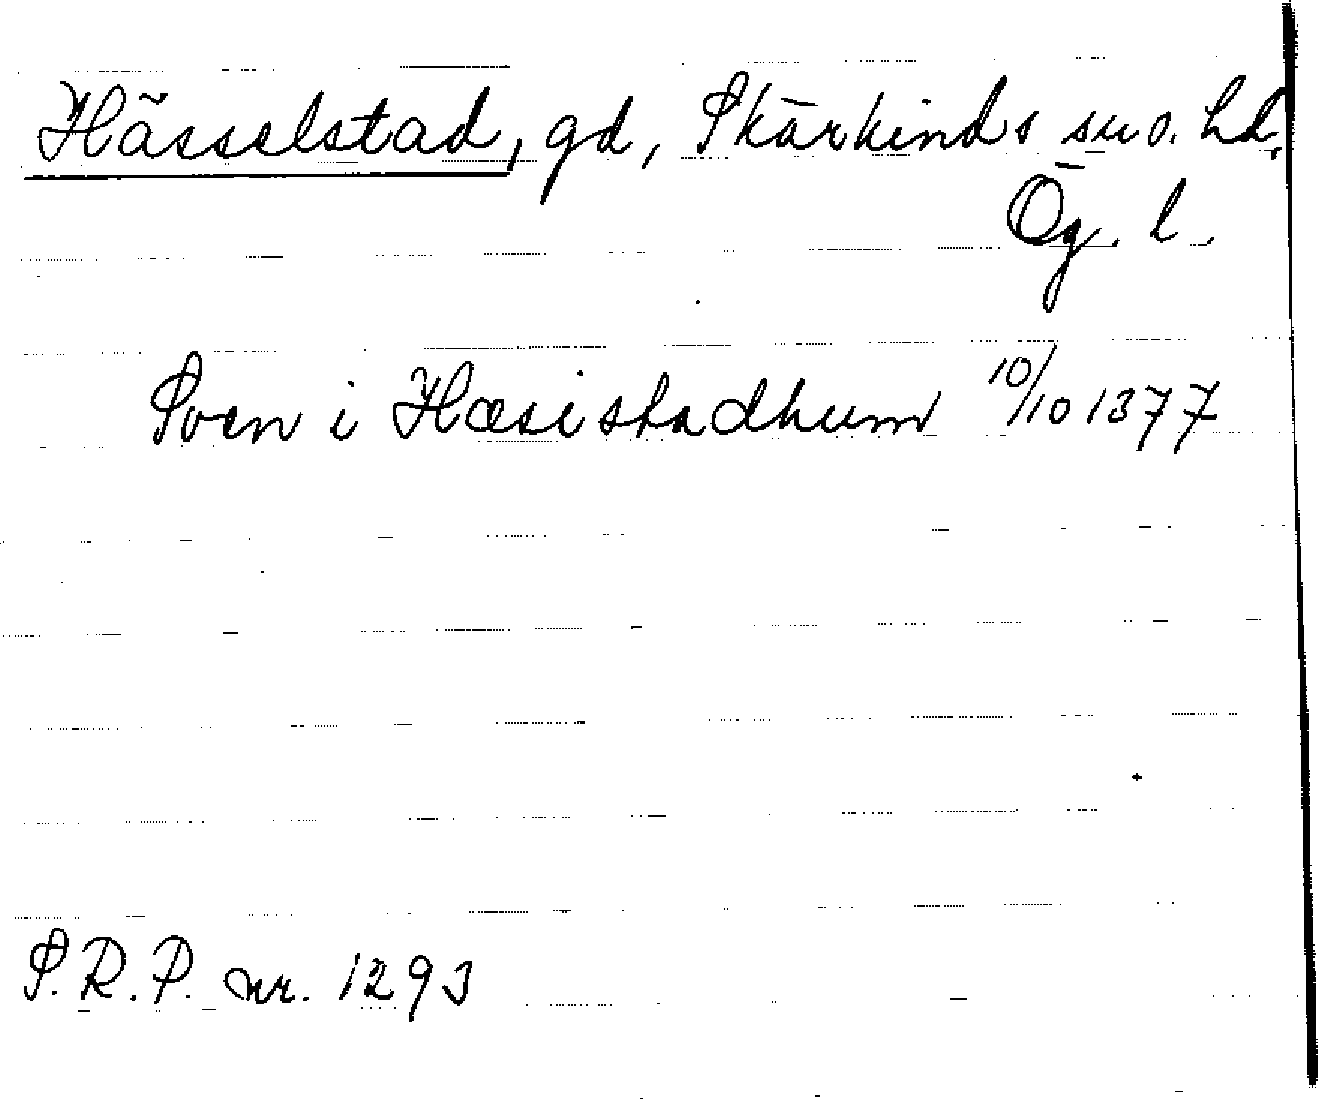 Hässelstad, gd, Skärkinds sn o. hd,
Ög. l.
Sven i Hæsistadhum 10/10 1377
S.R.P. nr. 1293